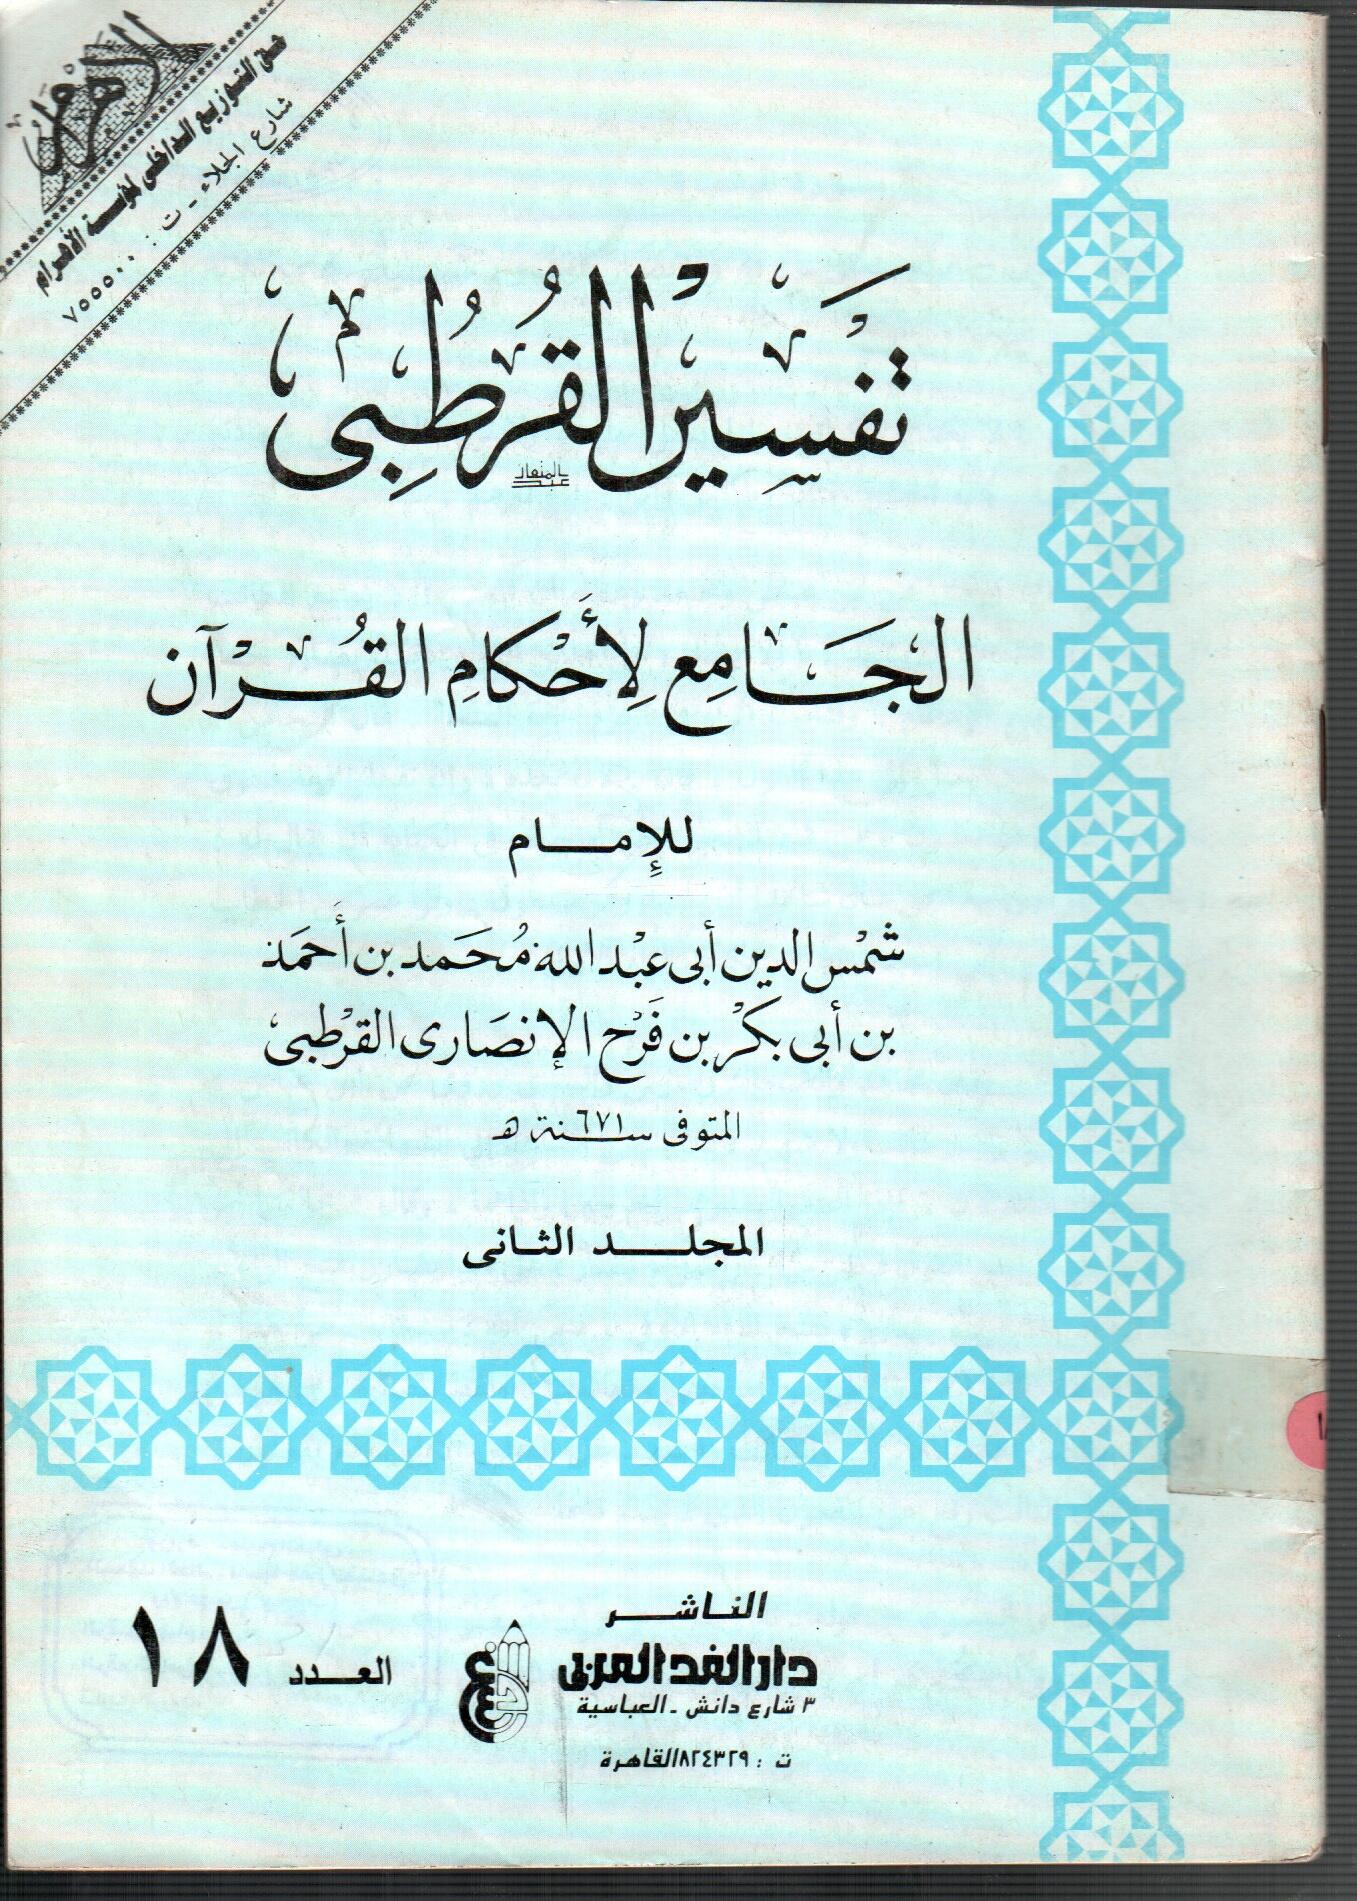 الاهرام
حق التوزيع الداخلى لمؤسسة الأهرام
شارع الجلاء - ت : ٧٥٥٥٠٠
تَفسِير القُرطُبِى
الجَامِع لِأَحْكامِ القُرْآن
للإِمام
شمْس الدين أبى عبْد الله مُحَمد بن أَحمَد
بن أبى بكْر بن فَرْح الإنصَارى القرْطبى
المتوفى سنة ٦٧١ هـ
المجلد الثانى
الناشر
دار الغد العربى
٣ شارع دانش - العباسية
ت : ٨٢٤٣٢٩ القاهرة
العدد ١٨